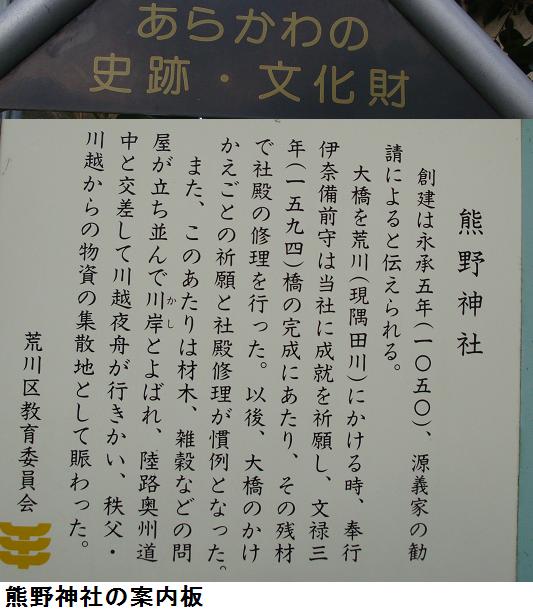 あらかわの
史跡・文化財
熊野神社
創建は永承五年(一〇五〇)、源義家の勧
請によると伝えられる。
大橋を荒川(現隅田川)にかける時、奉行
伊奈備前守は当社に成就を祈願し、文禄三
年(一五九四)橋の完成にあたり、その残材
で社殿の修理を行った。以後、大橋のかけ
かえごとの祈願と社殿修理が慣例となった。
また、このあたりは材木、雑穀などの問
屋が立ち並んで川岸とよばれ、陸路奥州道
かし
中と交差して川越夜舟が行きかい、秩父・
川越からの物資の集散地として賑わった。
荒川区教育委員会
熊野神社の案内板